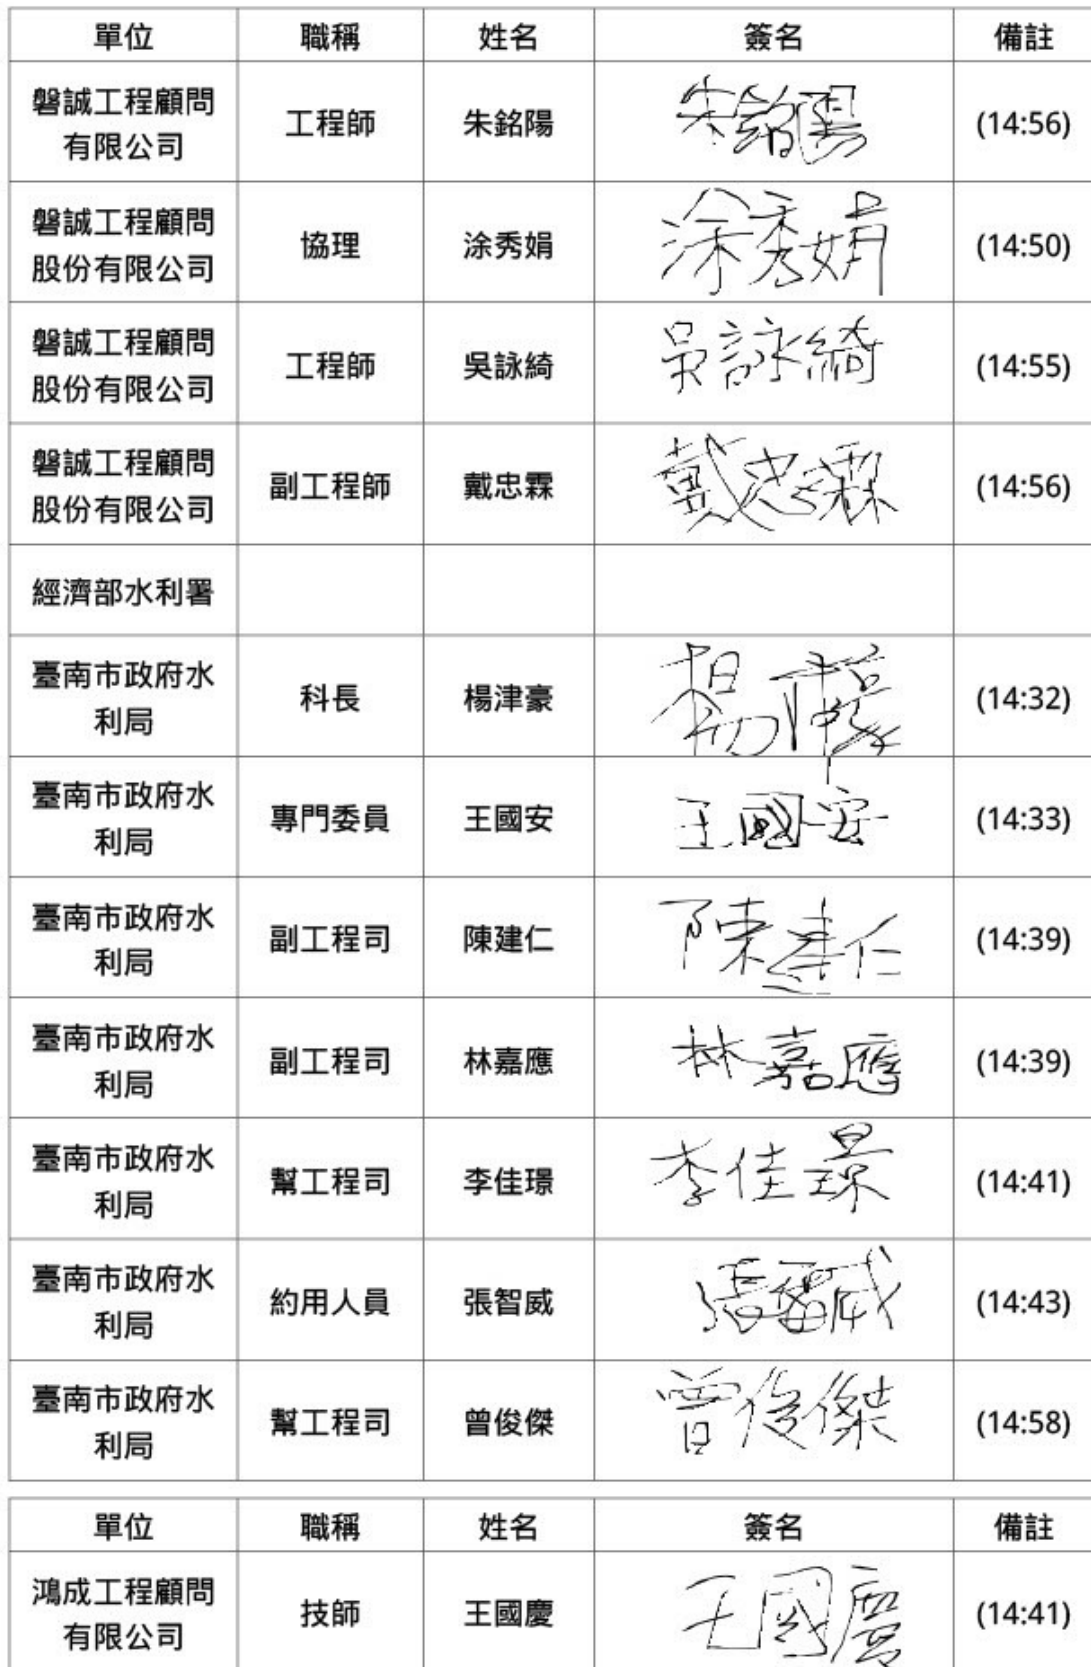 單位 職稱 姓名 簽名 備註
磐誠工程顧問
有限公司 工程師 朱銘陽 朱銘陽 (14:56)
磐誠工程顧問
股份有限公司 協理 涂秀娟 涂秀娟 (14:50)
磐誠工程顧問
股份有限公司 工程師 吳詠綺 吳詠綺 (14:55)
磐誠工程顧問
股份有限公司 副工程師 戴忠霖 戴忠霖 (14:56)
經濟部水利署
臺南市政府水
利局 科長 楊津豪 楊津豪 (14:32)
臺南市政府水
利局 專門委員 王國安 王國安 (14:33)
臺南市政府水
利局 副工程司 陳建仁 陳建仁 (14:39)
臺南市政府水
利局 副工程司 林嘉應 林嘉應 (14:39)
臺南市政府水
利局 幫工程司 李佳璟 李佳璟 (14:41)
臺南市政府水
利局 約用人員 張智威 張智威 (14:43)
臺南市政府水
利局 幫工程司 曾俊傑 曾俊傑 (14:58)
單位 職稱 姓名 簽名 備註
鴻成工程顧問
有限公司 技師 王國慶 王國慶 (14:41)